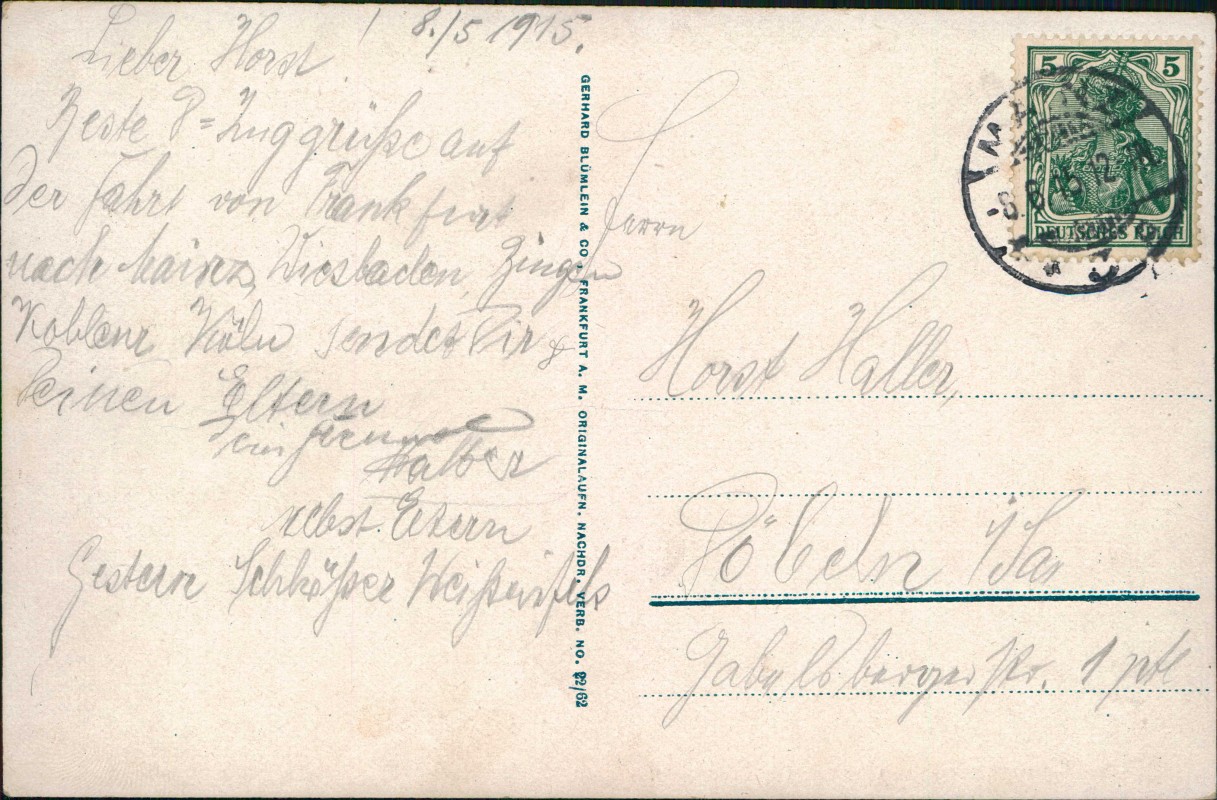 8./5 1915.
Lieber Horst!
Beste D=Zuggrüße auf
der Fahrt von Frankfurt
nach Mainz, Wiesbaden, Bingen
Koblenz Köln sendet Dir &
Deinen Eltern
Dein Freund
Walter
nebst Eltern
Gestern Weißenfels
GERHARD BLÜMLEIN & CO. FRANKFURT A. M. ORIGINALAUFN. NACHDR. VERB. NO. 22/62
5 5
DEUTSCHES REICH
Herrn
Horst Haller,
Döbeln i/Sa,
Gabelsbergerstr. 1 ptl